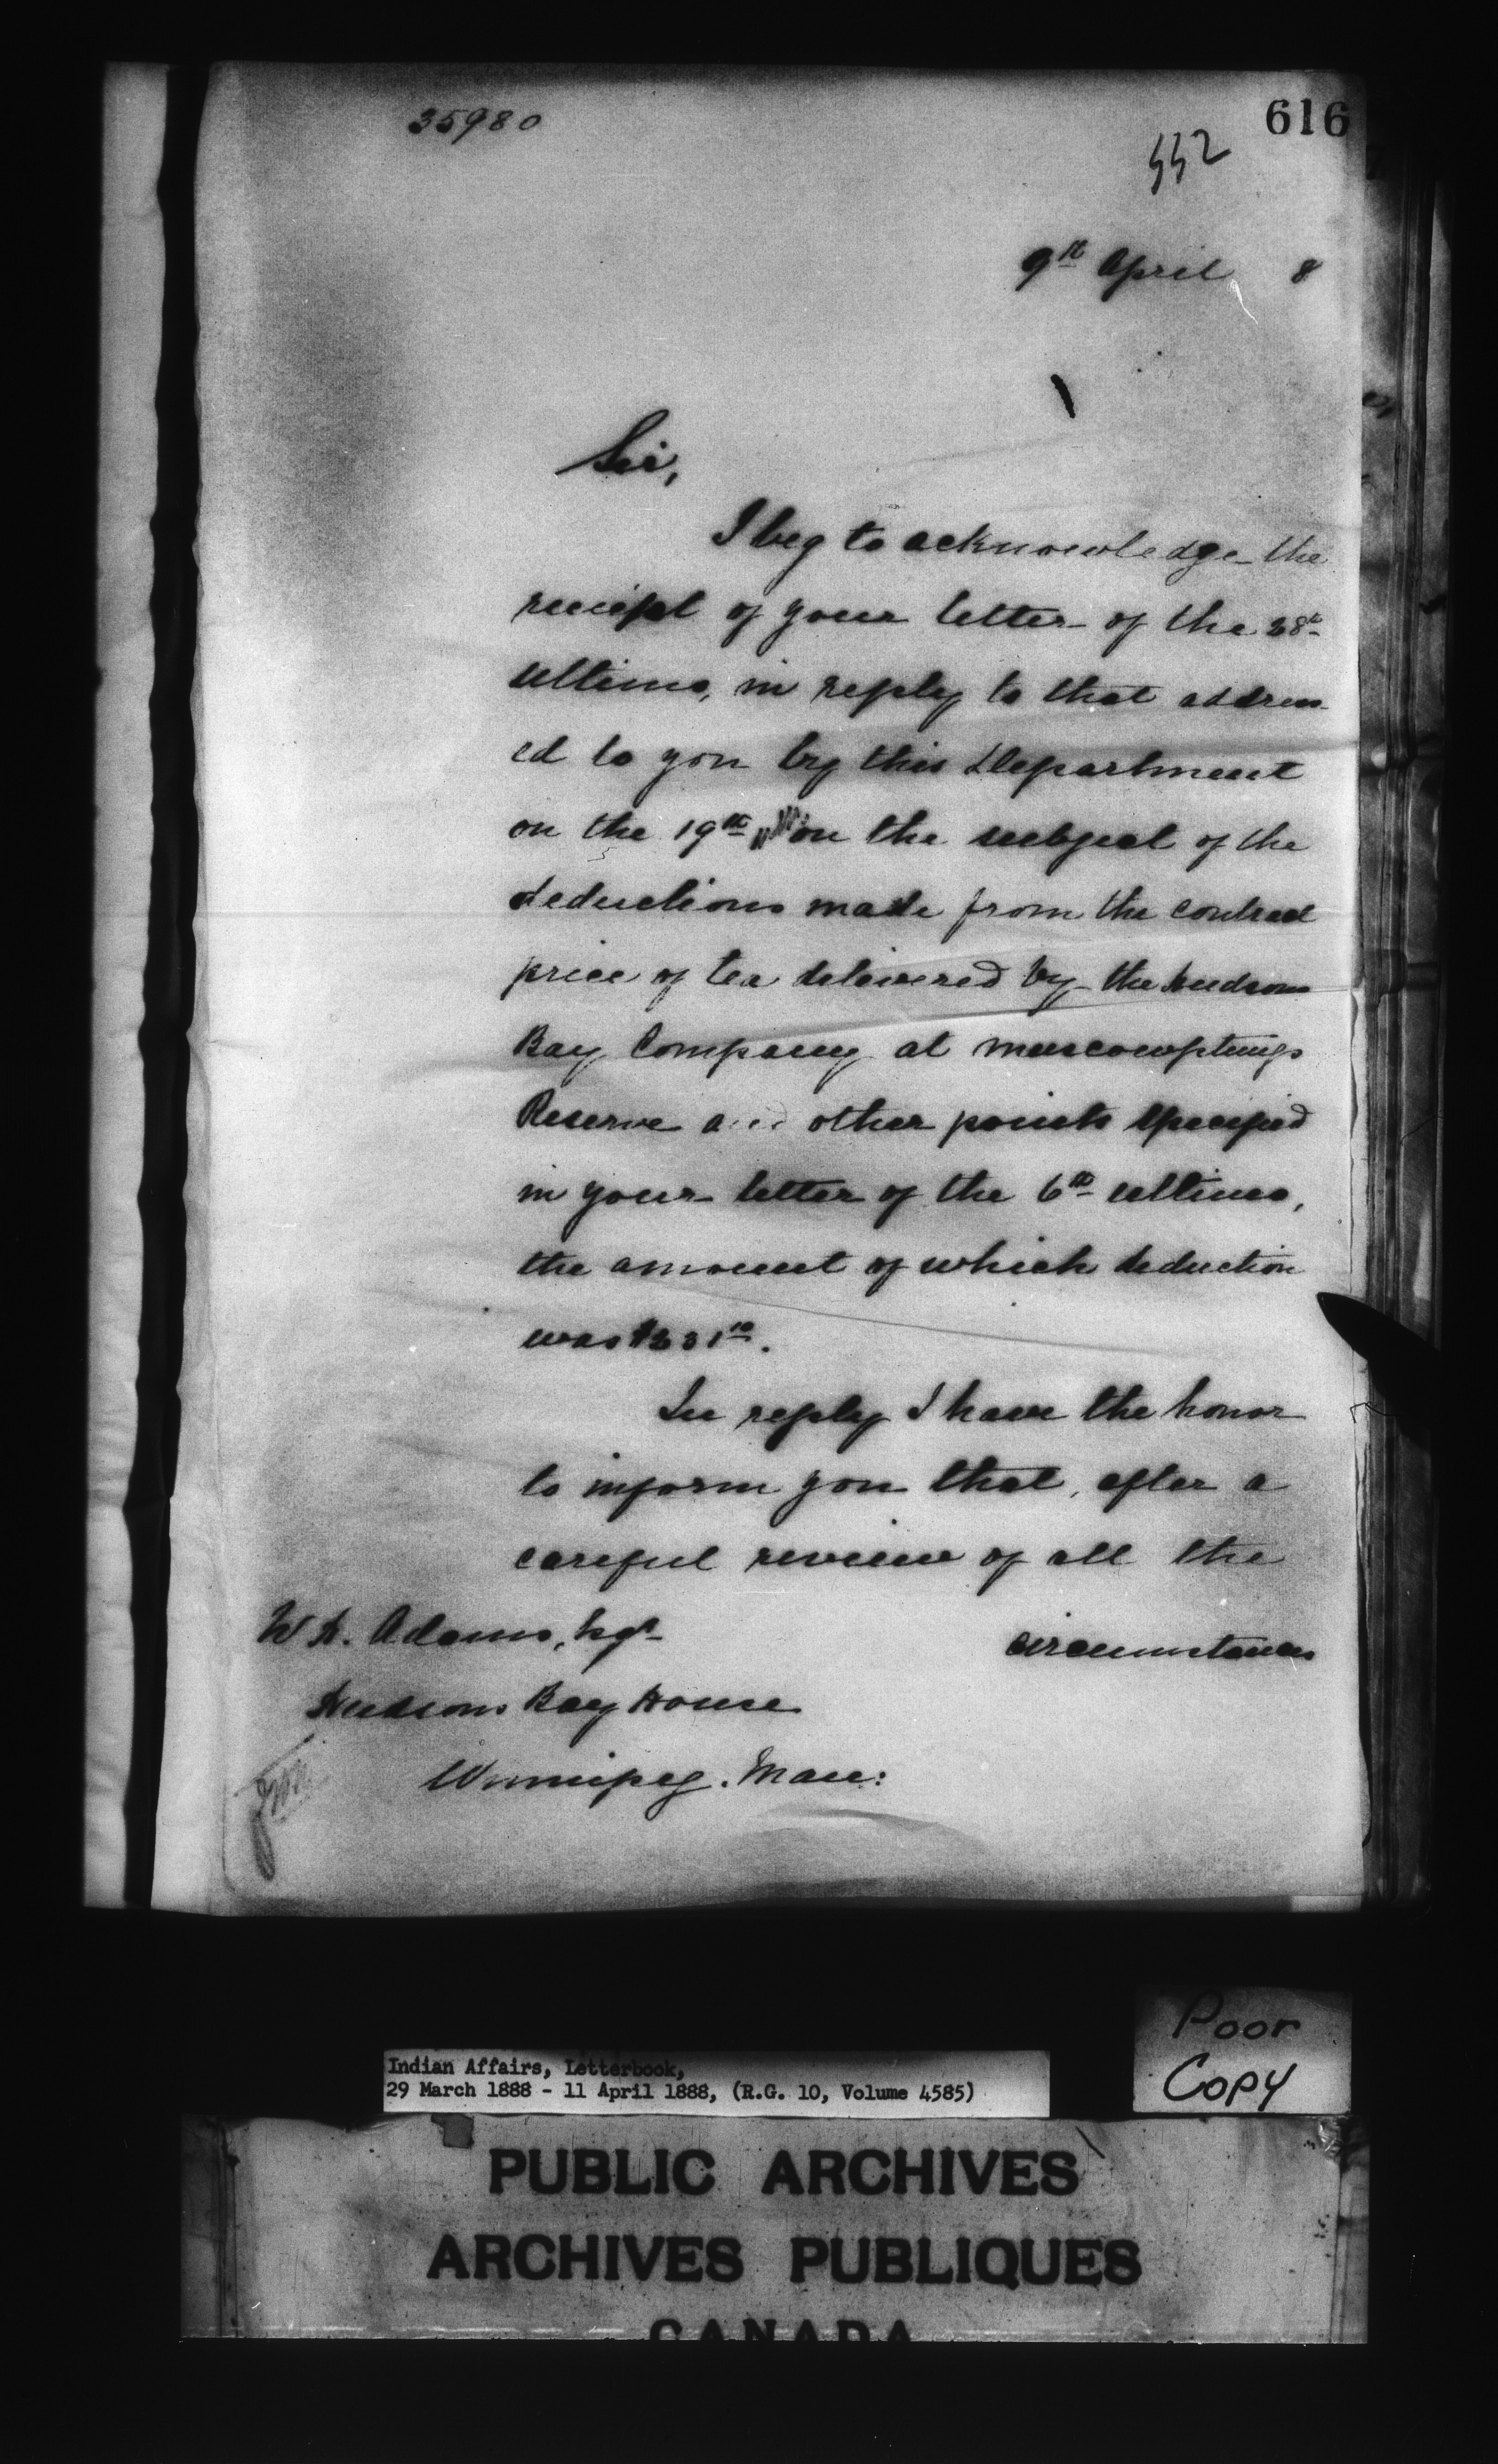 35980
616
552
9th April 8
Sir,
I beg to acknowledge the
receipt of your letter of the 28th
ultimo, in reply to that address-
ed to you by this Department
on the 19th on the subject of the
deductions made from the contract
price of tea delivered by the Hudsons
Bay Company at Muscowpetungs
Reserve and other points specified
in your letter of the 6th ultimo,
the amount of which deduction
was
In reply I have the honor
to inform you that, after a
careful review of all the
circumstances
Adams, Esqr
Hudsons Bay House
Winnipeg. Man:
Indian Affairs, Letterbook,
29 March 1888 - 11 April 1888, (R.G. 10, Volume 4585)
Poor
Copy
PUBLIC ARCHIVES
ARCHIVES PUBLIQUES
CANADA